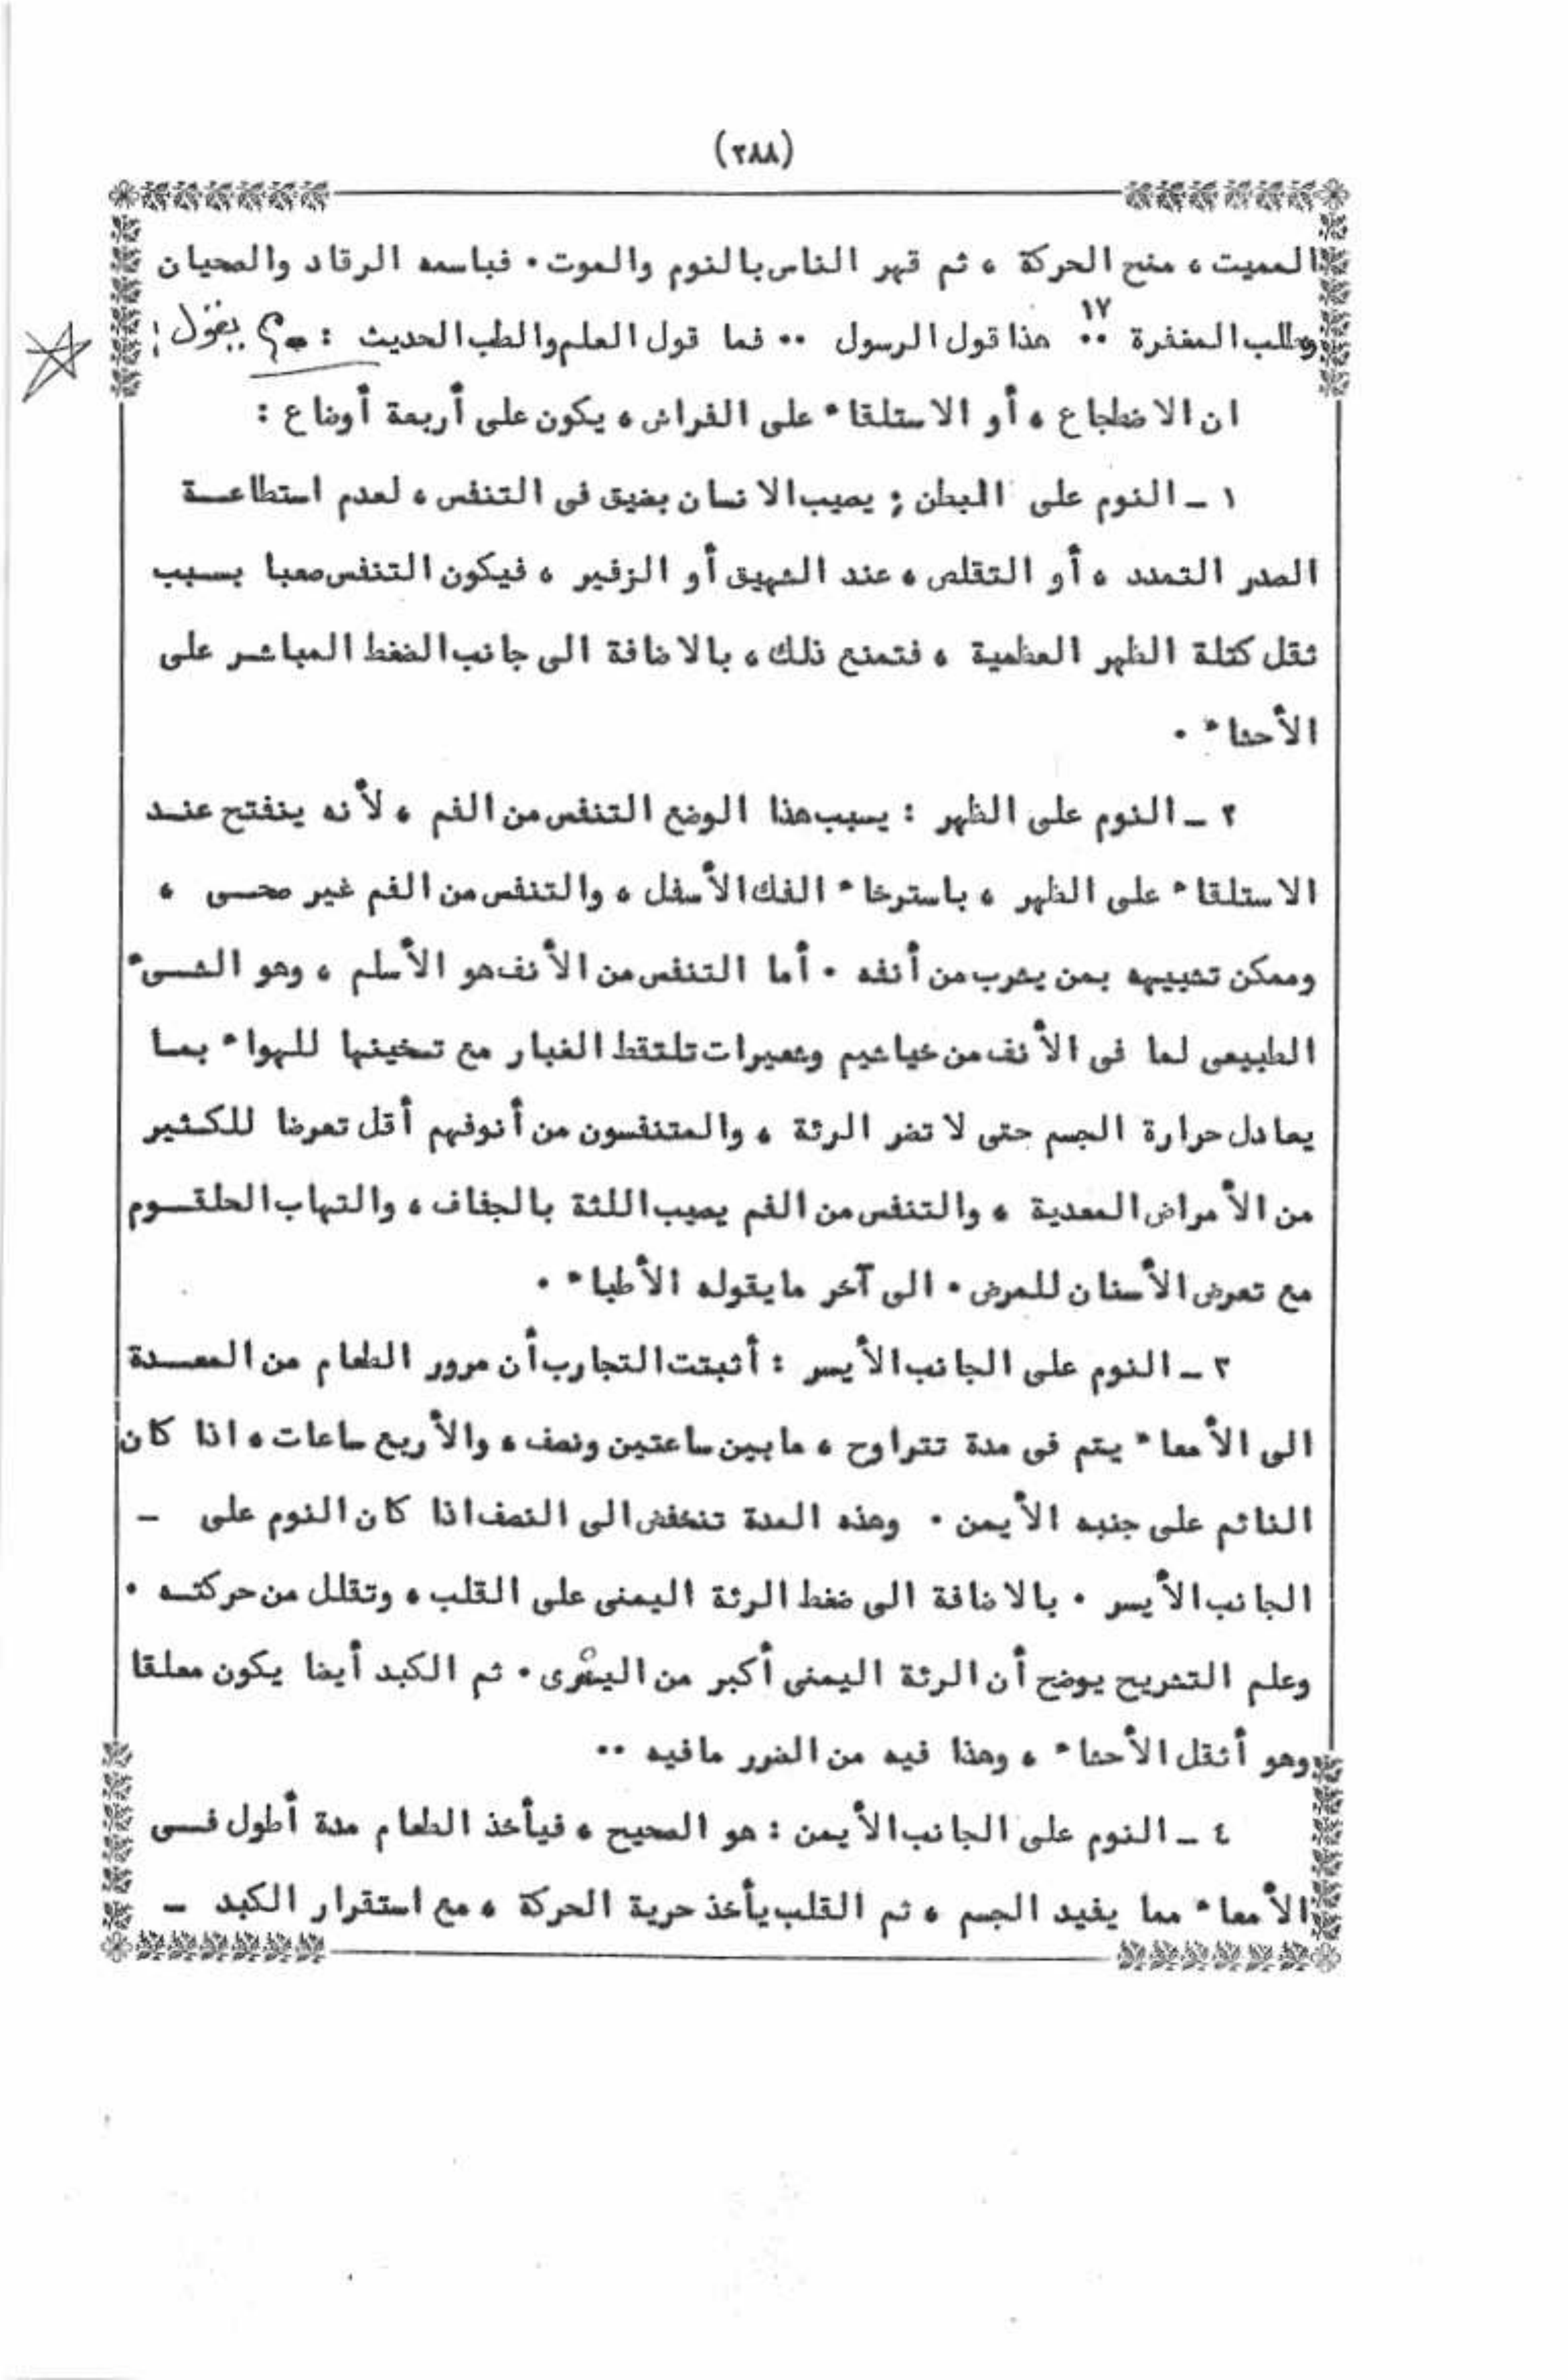 (٢٨٨)
المميت ، منح الحركة ، ثم قهر الناس بالنوم والموت . فباسمه الرقاد والصحيان
وطلب المغفرة .. ١٧ هذا قول الرسول .. فما قول العلم والطب الحديث : ؟ يقول :
ان الاضطجاع ، أو الاستلقاء على الفراش ، يكون على أربعة أوضاع :
١ ـ النوم على البطن ; يصيب الانسان بضيق فى التنفس ، لعدم استطاعــة
الصدر التمدد ، أو التقلص ، عند الشهيق أو الزفير ، فيكون التنفس صعبا بسبب
ثقل كتلة الظهر العظمية ، فتمنع ذلك ، بالاضافة الى جانب الضغط المباشر على
الأحشاء .
٢ ـ النوم على الظهر : يسبب هذا الوضع التنفس من الفم ، لأنه ينفتح عنـد
الاستلقاء على الظهر ، باسترخاء الفك الأسفل ، والتنفس من الفم غير صحـى ،
وممكن تشبيهه بمن يشرب من أنفه . أما التنفس من الأنف هو الأسلم ، وهو الشـىء
الطبيعى لما فى الأنف من خياشيم وشعيرات تلتقط الغبار مع تسخينها للهواء بمـا
يعادل حرارة الجسم حتى لا تضر الرئة ، والمتنفسون من أنوفهم أقل تعرضا للكـثير
من الأمراض المعدية ، والتنفس من الفم يصيب اللثة بالجفاف ، والتهاب الحلقــوم
مع تعرض الأسنان للمرض . الى آخر مايقوله الأطباء .
٣ ـ النوم على الجانب الأيسر : أثبتت التجارب أن مرور الطعام من المعــدة
الى الأمعاء يتم فى مدة تتراوح ، مابين ساعتين ونصف ، والأربع ساعات ، اذا كان
النائم على جنبه الأيمن . وهذه المدة تنخفض الى النصف اذا كان النوم على ـ
الجانب الأيسر . بالاضافة الى ضغط الرئة اليمنى على القلب ، وتقلل من حركتـه .
وعلم التشريح يوضح أن الرئة اليمنى أكبر من اليسرى . ثم الكبد أيضا يكون معلقا
وهو أثقل الأحشاء ، وهذا فيه من الضرر مافيه ..
٤ ـ النوم على الجانب الأيمن : هو الصحيح ، فيأخذ الطعام مدة أطول فــى
الأمعاء مما يفيد الجسم ، ثم القلب يأخذ حرية الحركة ، مع استقرار الكبد ـ